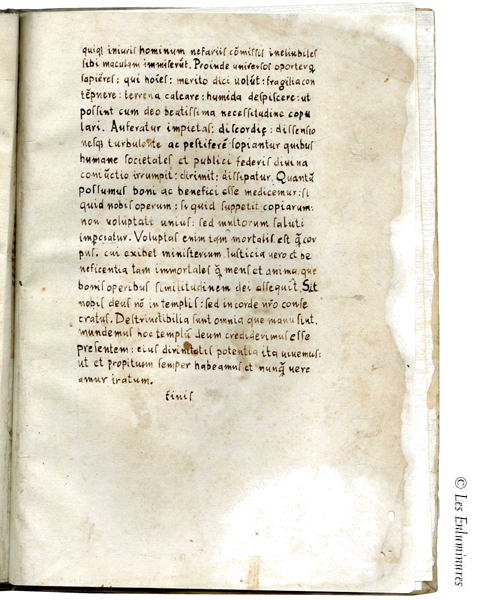 quiqȝ iniuris hominum nefariis cōmissis ineluibiles
sibi maculam immiserūt. Proinde universos oportet
sapiētes: qui hoīes: merito dici uolūt: fragilia con
tēpnere: terrena calcare: humida despiscere: ut
possint cum deo beatissima necessitudine copu
lari. Auferatur impietas: discordie: dissensio
nesqȝ turbulente ac pestifere sopiantur quibus
humane societates et publici federis divina
coniūctio irrumpit: dirimit: dissipatur. Quantū
possumus boni ac benefici esse medicemur: si
quid nobis operum: si quid suppetit copiarum:
non voluptati unius: sed multorum saluti
impctatur. Voluptas enim tam mortalis est q̄ cor
pus, cui exibet ministerium. Iusticia uero et be
neficentia tam immortales q̄ mens et anima, que
bonis operibus similitudinem dei assequit. Sit
nobis deus nō in templis: sed in corde nr̄o conse
cratus. Destructibilia sunt omnia que manu fiūt.
mundemus hoc templū deum crediderimus esse
presentem: eius divinitatis potentia ita uiuemus:
ut et propitium semper habeamus et nunq̄ uere
amur iratum.
finis
© Les Enluminures